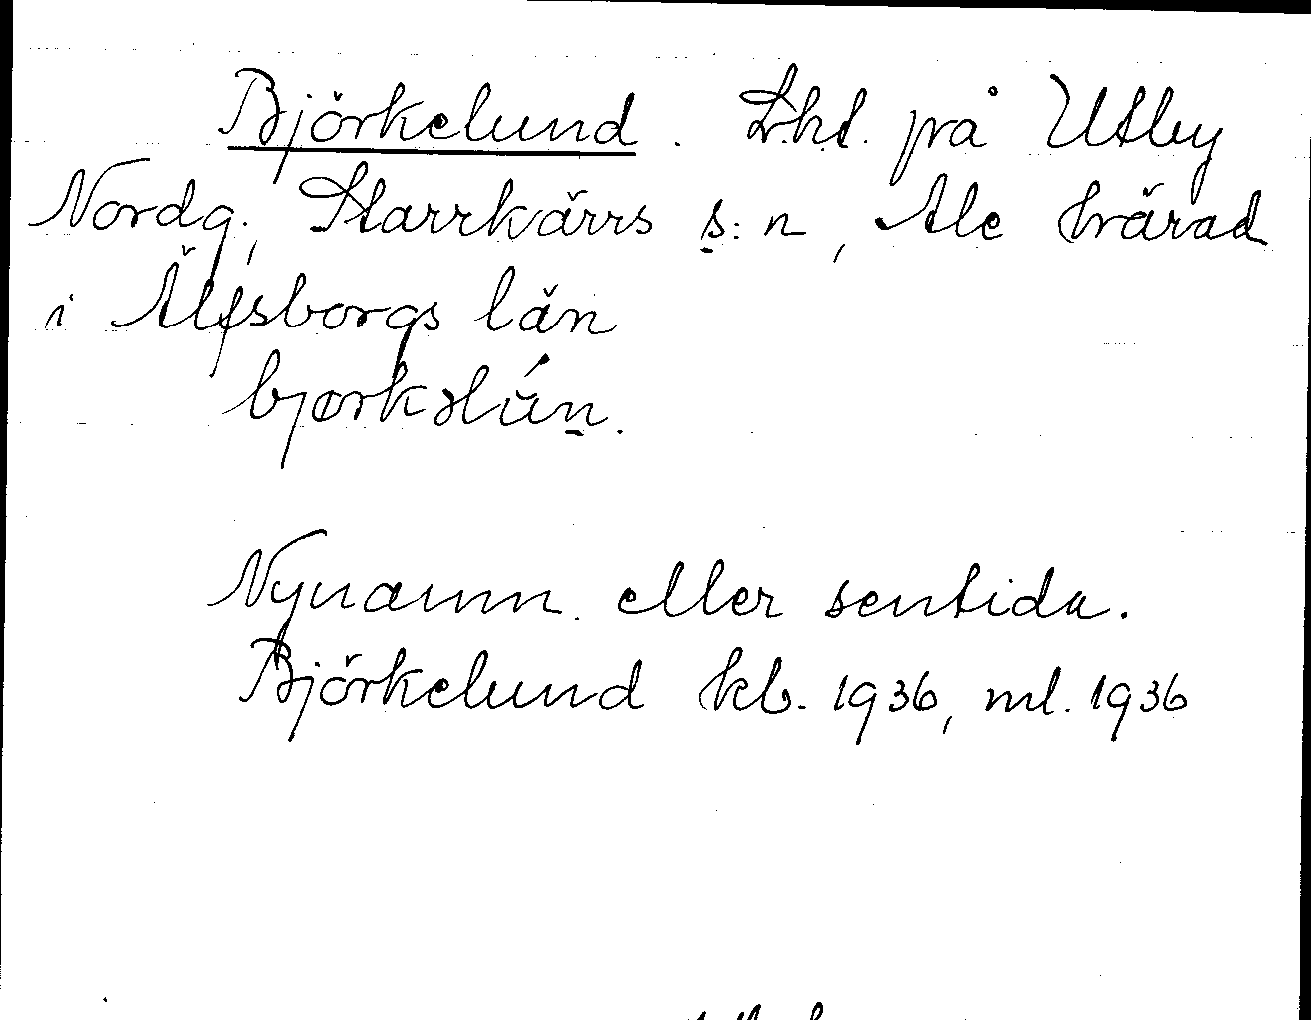 Björkelund. Lht. på Utby
Nordg., Starrkärrs s:n, Ale härad
i Älfsborgs län
bjørkəlún.
Nynamn eller sentida.
Björkelund kb. 1936, ml. 1936